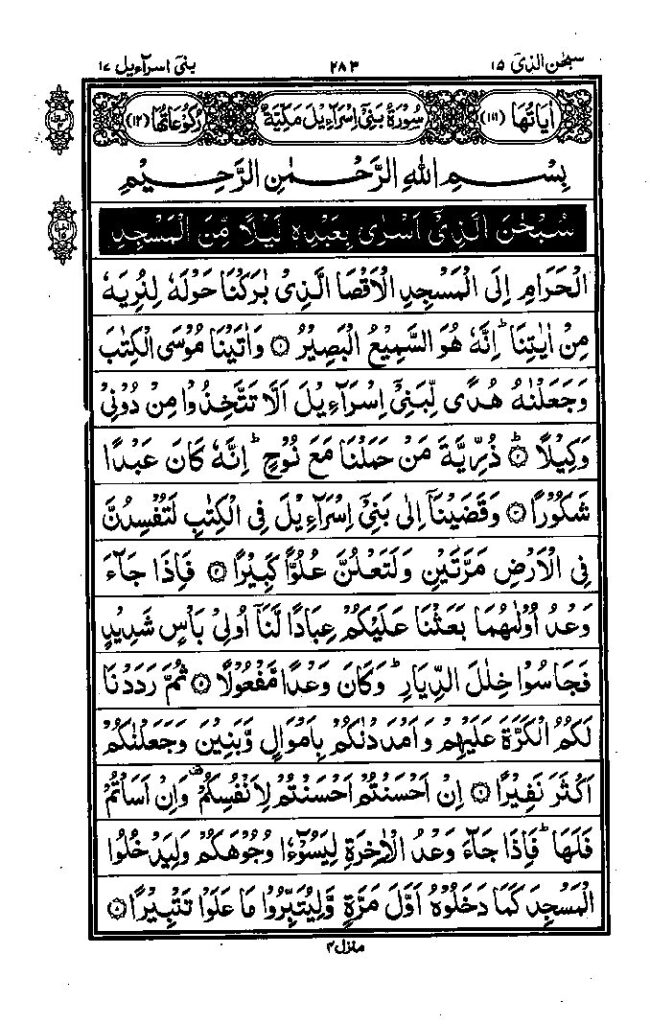 سبحٰن الذی ١٥ ٢٨٣ بنی اسرآءیل ١٧
اٰیَاتُهَا (١١١) سُوْرَةُ بَنِیْۤ اِسْرَآءِیْلَ مَكِّیَّةٌ رُكُوْعَاتُهَا (١٢)
بِسْمِ اللّٰهِ الرَّحْمٰنِ الرَّحِیْمِ
سُبْحٰنَ الَّذِیْۤ اَسْرٰى بِعَبْدِهٖ لَیْلًا مِّنَ الْمَسْجِدِ
الْحَرَامِ اِلَى الْمَسْجِدِ الْاَقْصَا الَّذِیْ بٰرَكْنَا حَوْلَهٗ لِنُرِیَهٗ
مِنْ اٰیٰتِنَا ؕ اِنَّهٗ هُوَ السَّمِیْعُ الْبَصِیْرُ ۝١ وَاٰتَیْنَا مُوْسَى الْكِتٰبَ
وَجَعَلْنٰهُ هُدًى لِّبَنِیْۤ اِسْرَآءِیْلَ اَلَّا تَتَّخِذُوْا مِنْ دُوْنِیْ
وَكِیْلًا ۝٢ؕ ذُرِّیَّةَ مَنْ حَمَلْنَا مَعَ نُوْحٍ ؕ اِنَّهٗ كَانَ عَبْدًا
شَكُوْرًا ۝٣ وَقَضَیْنَاۤ اِلٰى بَنِیْۤ اِسْرَآءِیْلَ فِی الْكِتٰبِ لَتُفْسِدُنَّ
فِی الْاَرْضِ مَرَّتَیْنِ وَلَتَعْلُنَّ عُلُوًّا كَبِیْرًا ۝٤ فَاِذَا جَآءَ
وَعْدُ اُوْلٰىهُمَا بَعَثْنَا عَلَیْكُمْ عِبَادًا لَّنَاۤ اُولِیْ بَاْسٍ شَدِیْدٍ
فَجَاسُوْا خِلٰلَ الدِّیَارِ ؕ وَكَانَ وَعْدًا مَّفْعُوْلًا ۝٥ ثُمَّ رَدَدْنَا
لَكُمُ الْكَرَّةَ عَلَیْهِمْ وَاَمْدَدْنٰكُمْ بِاَمْوَالٍ وَّبَنِیْنَ وَجَعَلْنٰكُمْ
اَكْثَرَ نَفِیْرًا ۝٦ اِنْ اَحْسَنْتُمْ اَحْسَنْتُمْ لِاَنْفُسِكُمْ ۫ وَاِنْ اَسَاْتُمْ
فَلَهَا ؕ فَاِذَا جَآءَ وَعْدُ الْاٰخِرَةِ لِیَسُوْٓءٗا وُجُوْهَكُمْ وَلِیَدْخُلُوا
الْمَسْجِدَ كَمَا دَخَلُوْهُ اَوَّلَ مَرَّةٍ وَّلِیُتَبِّرُوْا مَا عَلَوْا تَتْبِیْرًا ۝
منزل ٤